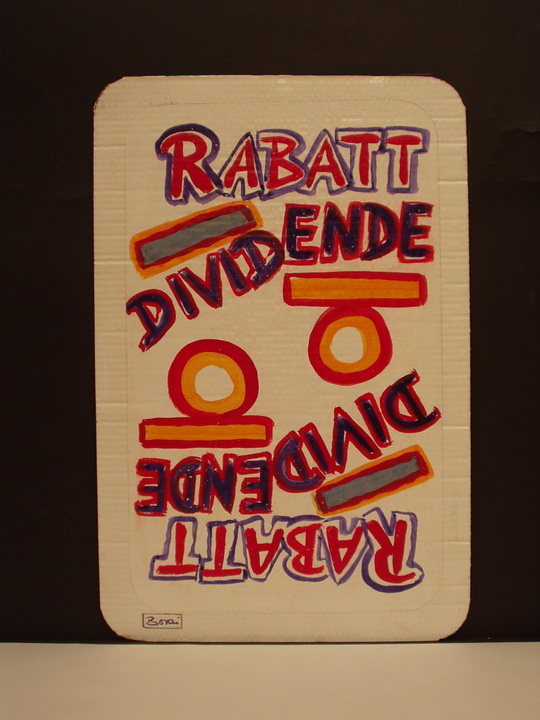 RABATT
DIVIDENDE
DIVIDENDE
RABATT